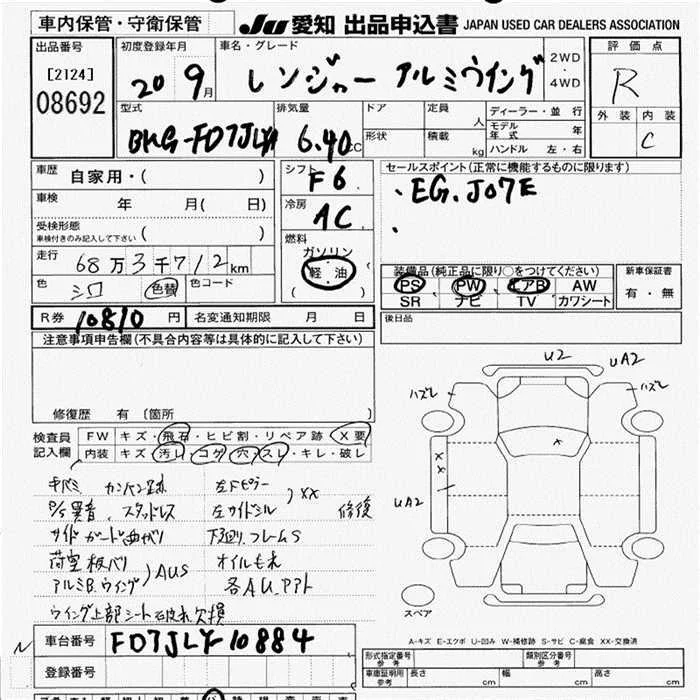 車内保管・守衛保管
JU 愛知 出品申込書 JAPAN USED CAR DEALERS ASSOCIATION
出品番号
[2124]
08692
初度登録年月
20 9月
車名・グレード
レンジャー アルミウイング
2WD
・
4WD
評価点
R
外装 内装
C
型式
BKG-FD7JLYA
排気量
6.40 cc
ドア
形状
定員 人
積載 kg
ディーラー・並行
モデル年式 年
ハンドル 左・右
車歴 自家用・( )
車検 年 月( 日)
受検形態
車検付きのみ記入して下さい ( )
走行 68万3千712km
色 シロ 色替 色コード
シフト F6
冷房 AC
燃料
ガソリン
軽油
( )
セールスポイント(正常に機能するものに限ります)
、EG. J07E
装備品(純正品に限り○をつけてください)
PS PW エアB AW
SR ナビ TV カワシート
新車保証書
有・無
R券 10810円 名変通知期限 月 日
後日品
注意事項申告欄(不具合内容等は具体的に記入して下さい)
修復歴 有〔箇所 〕
検査員記入欄
FW キズ・飛石・ヒビ割・リペア跡 X要
内装 キズ・汚レ・コゲ・穴・スレ・キレ・破レ
キバミ カンバン跡 左Fピラー
異音、スタッドレス 左サイドシル 〉XX 修復
サイドガード曲がり 下廻リフレームS
荷室板バリ オイルもれ
アルミB.ウイング 〉AUS 各AU.アアト
ウイング上部シート破れ欠損
U2 UA2
ハズレ ハズレ
X
XX
UA2
スペア
A-キズ E-エクボ U-凹み W-補修跡 S-サビ C-腐食 XX-交換済
N
車台番号 FD7JLY-10884
登録番号
形式指定番号 参考
類別区分番号 参考
車庫証明用 参考 長さ cm 幅 cm 高さ cm